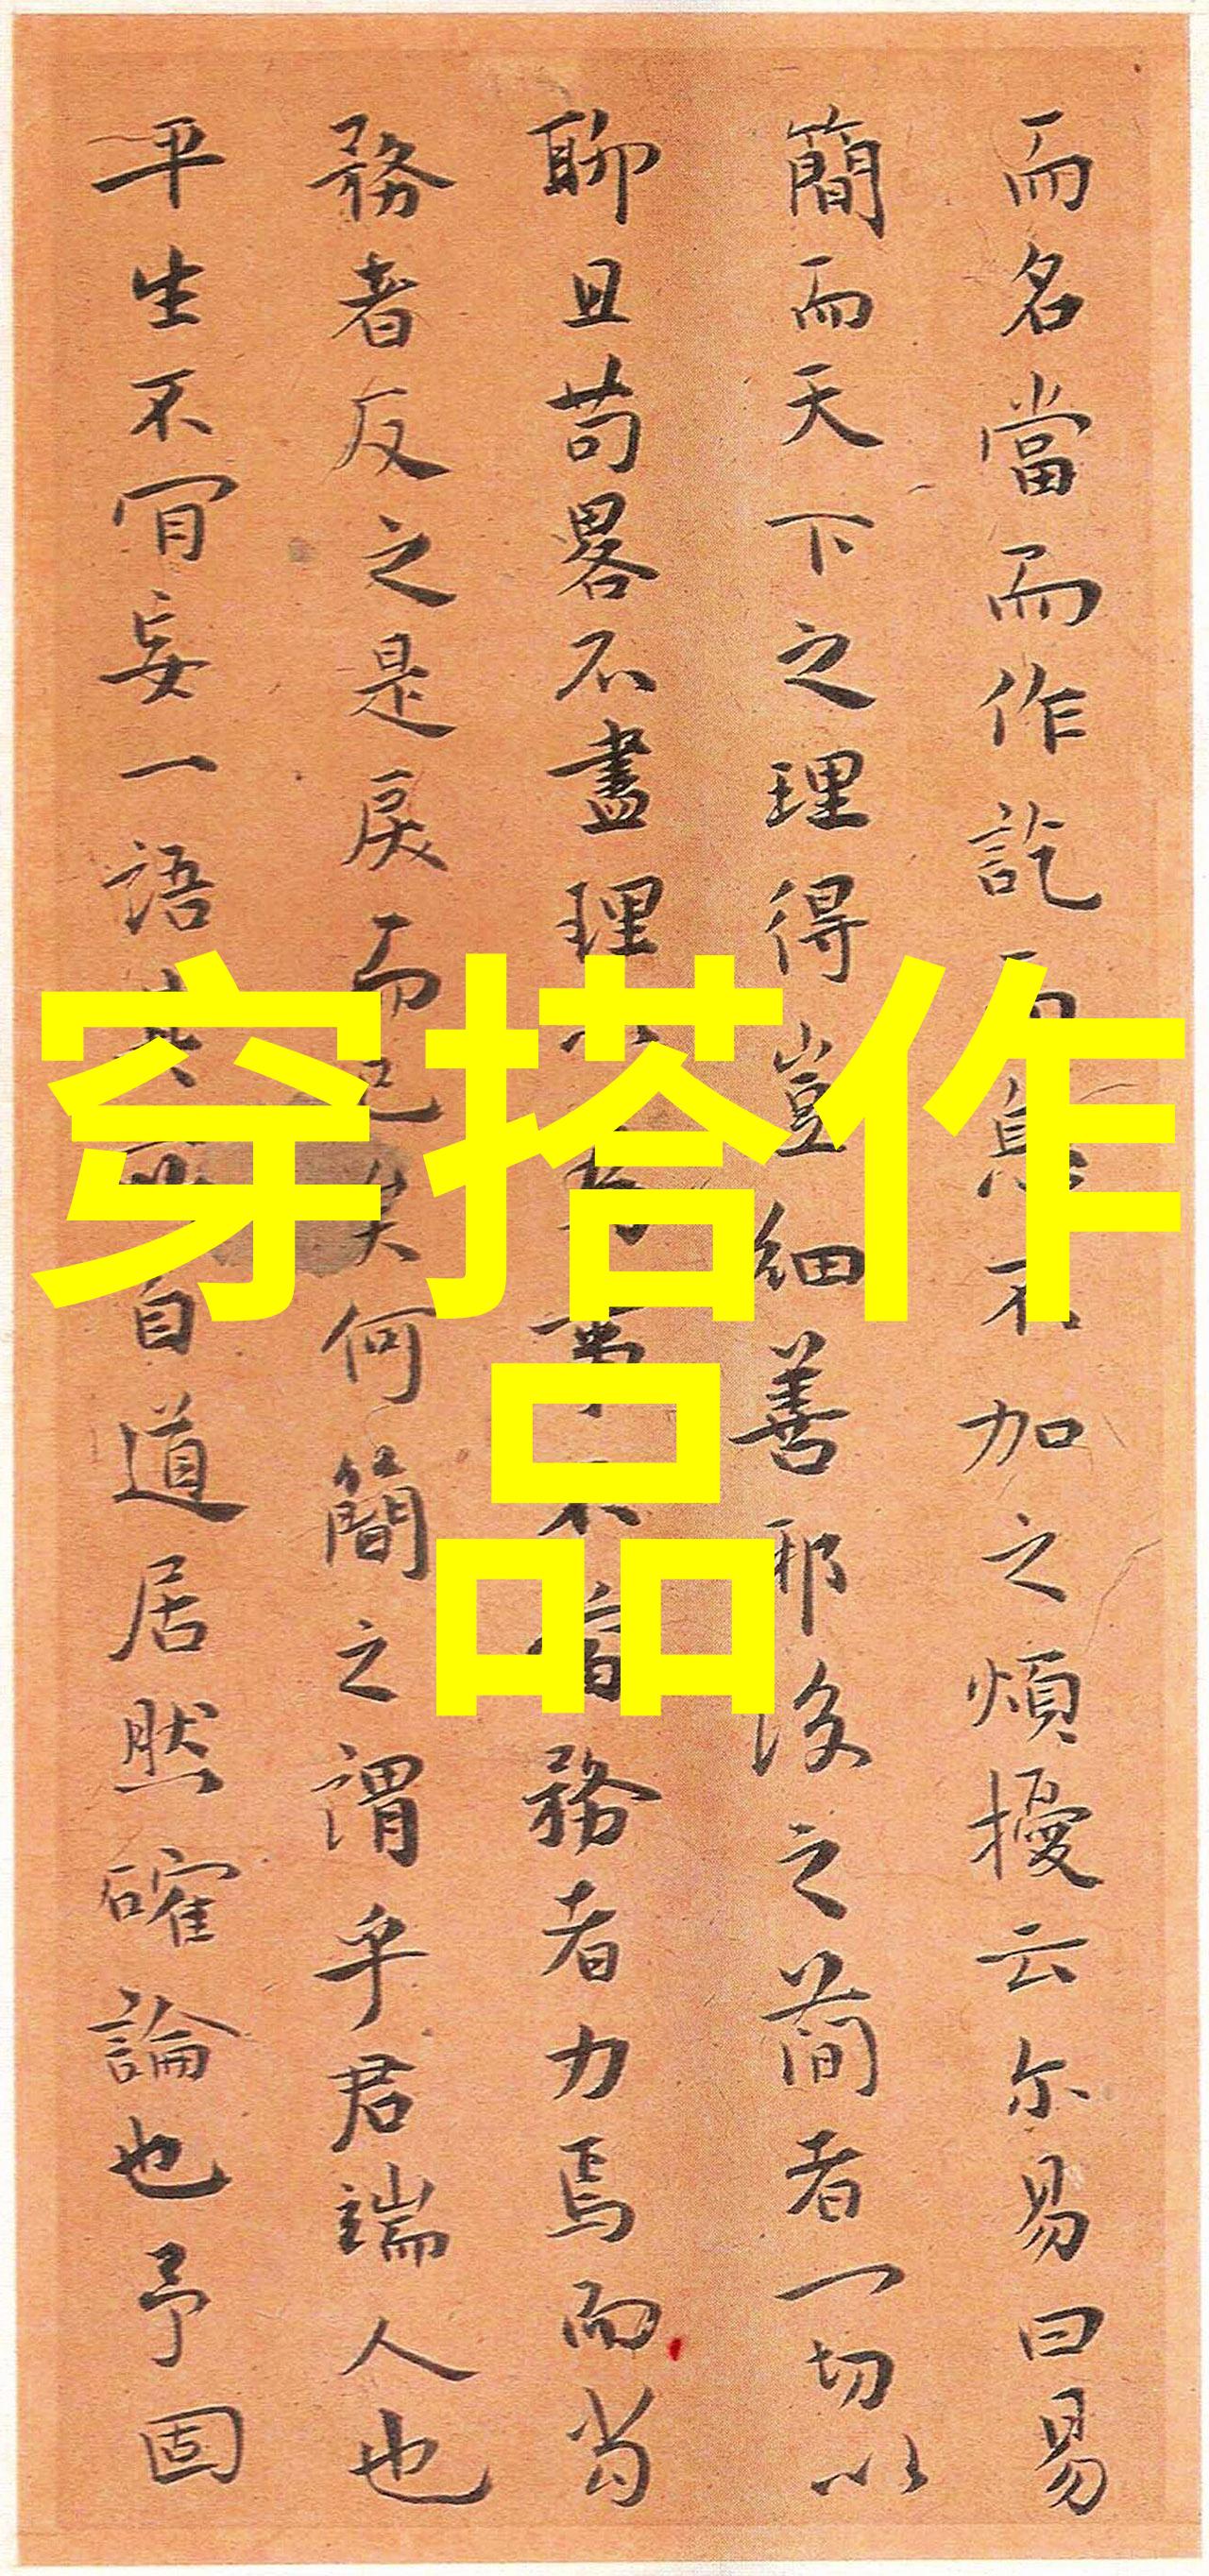 而名當而作訖而息不加之煩擾云尔易曰易
簡而天下之理得豈細善耶後之简者一切以
聊且苟畧不盡理 務者力焉而当
務者反之是戾而已矣何簡之謂乎君端人也
平生不肎妄一語其 自道居然確論也予固
穿搭作
品